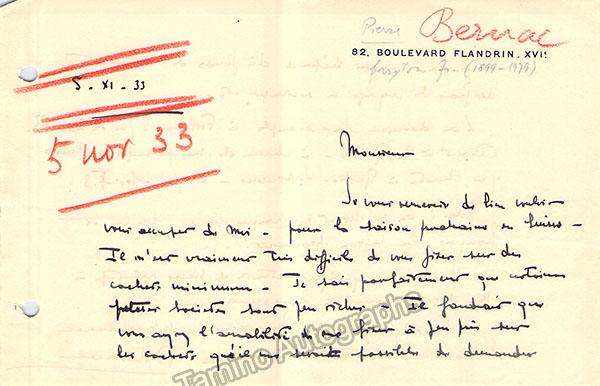 Pierre Bernac
82, BOULEVARD FLANDRIN. XVIe
baryton fr. (1899-1979)
5 - XI - 33
5 nov 33
Monsieur
Je vous remercie de bien vouloir
vous occuper de moi - pour la saison prochaine en Suisse -
Il m'est vraiment très difficile de vous fixer sur des
cachets minimums - Je sais parfaitement que certaines
petites sociétés sont peu riches - Il faudrait que
vous ayez l'amabilité de me fixer à peu près sur
les cachets qu'il me serait possible de demander
Tamino Autographs